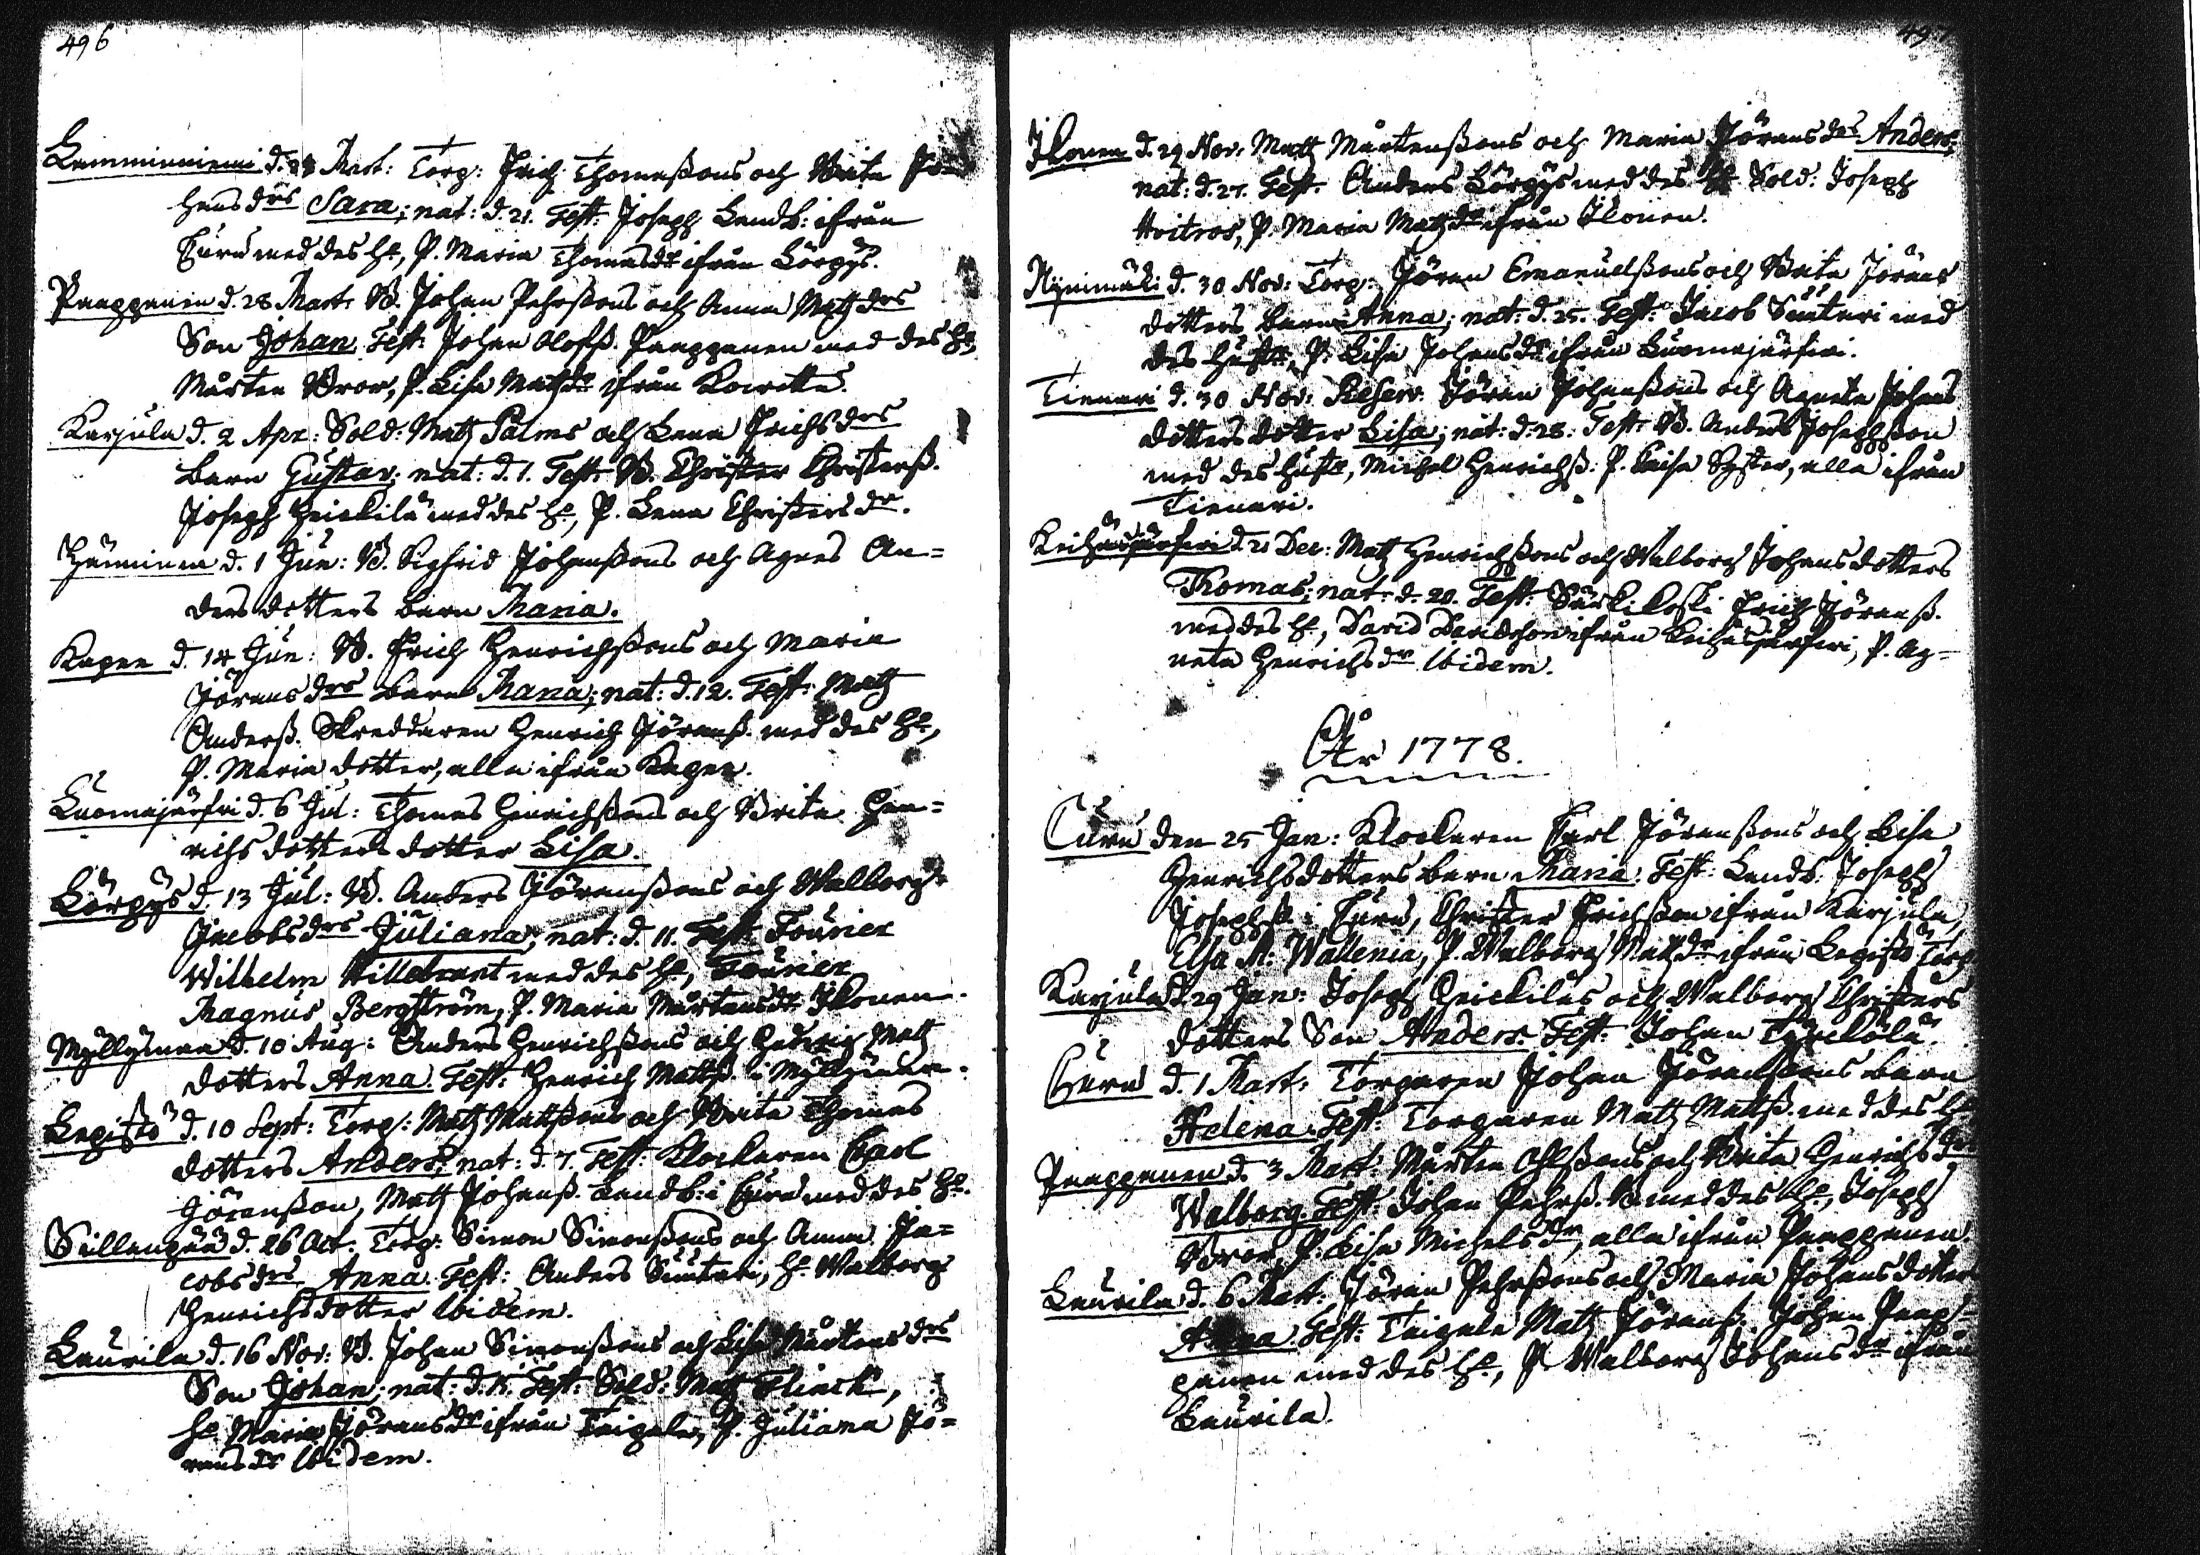 496
Lamminniemi d. Mart: Torp: Erich Thomæßons och Brita Jo-
hans drs Sara; nat: d. 21. Test: Joseph Landb: ifrån
Curu med des H., P. Maria Thomasdr ifrån Körpys.
Paappanen d. 28. Mart: B. Johan Pehrßons och Anna Matzdrs
Son Johan. Test: Johan Olofß. Paappanen med des H.
Mårten Bror, P. Lisa Matzdr ifrån
Karjula d. 2 Apr: Sold: Matz Palms och Lena Erichsdrs
barn Gustav; nat: d. 1. Test: B. Christer Christerß.
Joseph Heickilä med des H., P. Lena Christersdr.
Hänninen d. 1 Jun: B. Sigfrid Johanßons och Agnes An=
ders dotters barn Maria.
Kapee d. 14 Jun: B. Erich Henrichßons och Maria
Jörans drs barn Maria; nat: d. 12. Test: Matz
Anderß. Skreddaren Henrich Jöranß. med des H.,
P. Maria dotter, alla ifrån Kapee.
Luomajärfvi d. 6 Jul: Thomas Henrichßons och Brita Hen=
richs dotters dotter Lisa.
Körpys d. 13 Jul: B. Anders Jöranßons och Walborg
Jacobsdrs Juliana; nat: d. 11. Test: Fourier
Wilhelm Hillebrant med des H., Fourier
Magnus Bergström, P. Maria Mårtensdr Ikonen.
Myllymaa d. 10 Aug: Anders Henrichßons och Hedvig Matz
dotters Anna. Test: Henrich Mattß. i Myllymaa.
Lepistö d. 10 Sept: Torp: Matz Mattßons och Brita Thomas
dotters Anders; nat: d. 7. Test: Klockaren Carl
Jöranßon, Matz Johanß. Landb: i Curu med des H.
Sillanpää d. 26 Oct: Torp: Simon Simonßons och Anna Ja=
cobs drs Anna. Test: Anders Suutari, H. Walborg
Henrichsdotter ibidem.
Laurila d. 16 Nov: B. Johan Simonßons och Lisa Mårtensdrs
Son Johan; nat: d. 15. Test: Sold: Matz Flinck,
H. Maria Jöransdr ifrån Taipale, P. Juliana Jö=
rans dr ibidem.
Ikonen d. 29 Nov: Matz Mårtenßons och Maria Jöransdrs Anders;
nat: d. 27. Test: Anders Körpys med des H. Sold: Joseph
P. Maria Matzdr ifrån Ikonen.
Nynimäki d. 30 Nov: Torp: Jöran Emanuelßons och Brita Jörans
dotters barn Anna; nat: d. 25. Test: Jacob Suutari med
des hustr, P. Lisa Johansdr ifrån Luomajärfvi.
Tienari d. 30 Nov: Reserv: Jöran Johanßons och Agneta Johans
dotters dotter Lisa; nat: d. 28. Test: B. Anders Josephßon
med des hustr, Michel Henrichß. P. Caisa Syster, alla ifrån
Tienari.
Keihäsjärfvi d. 21 Dec: Matz Henrichßons och Walborg Johansdotters
Thomas; nat: d. 20. Test: Särkikoski Erich Jöranß.
med des H., David Davidson ifrån Keihäsjärfvi, P. Ag=
neta Henrichsdr ibidem.
År 1778.
Curu den 25 Jan: Klockaren Carl Jöranßons och Lisa
Henrichsdotters barn Maria. Test: Landb: Joseph
Josephß. i Curu, Christer Erichßon ifrån Karjula,
Elsa M: Wallenia, P. Walborg Matzdr ifrån Lepistö Torp
Karjula d. 29 Jan: Joseph Heickiläs och Walborg Christers
dotters Son Anders. Test: Johan
Curu d. 1 Mart: Torparen Johan Jöranßons barn
Helena. Test: Torparen Matz Mattß. med des H.
Paappanen d. 3 Mart: Mårten Olßons och Brita Henrichsdrs
Walborg. Test: Johan Pehrß. B. med des H., Joseph
Bror, P. Lisa Michelsdr, alla ifrån Paappanen.
Laurila d. 6 Mart: Jöran Pehrßons och Maria Johansdotters
Anna. Test: Taipale Matz Jöranß. Johan Paap=
panen med des H., P. Walborg Johansdr ifrån
Laurila.